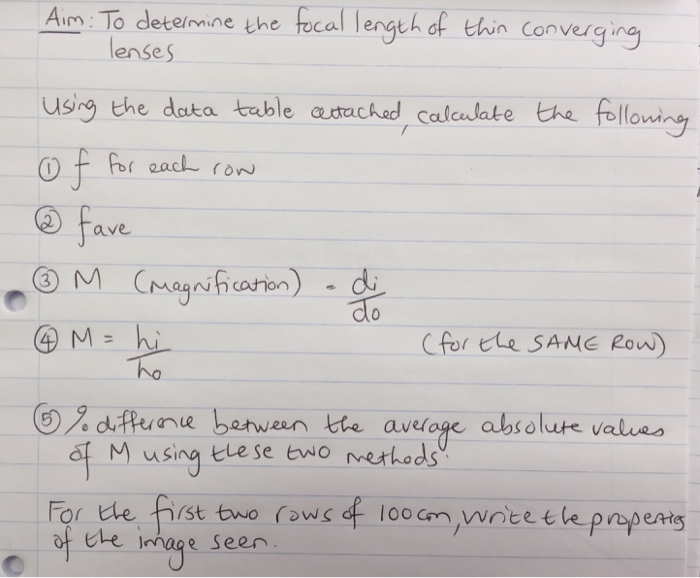 Aim: To determine the focal length of thin converging
lenses
Using the data table attached, calculate the following
① f for each row
② fave
③ M (Magnification) - di/do
④ M = hi/ho (for the SAME ROW)
⑤ % difference between the average absolute values
of M using these two methods.
For the first two rows of 100cm, write the properties
of the image seen.